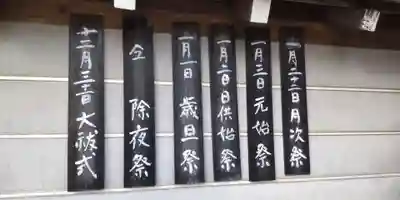 十二月三十一日大祓式
仝 除夜祭
一月一日 歳旦祭
一月二日日供始祭
一月三日元始祭
一月二十三日月次祭